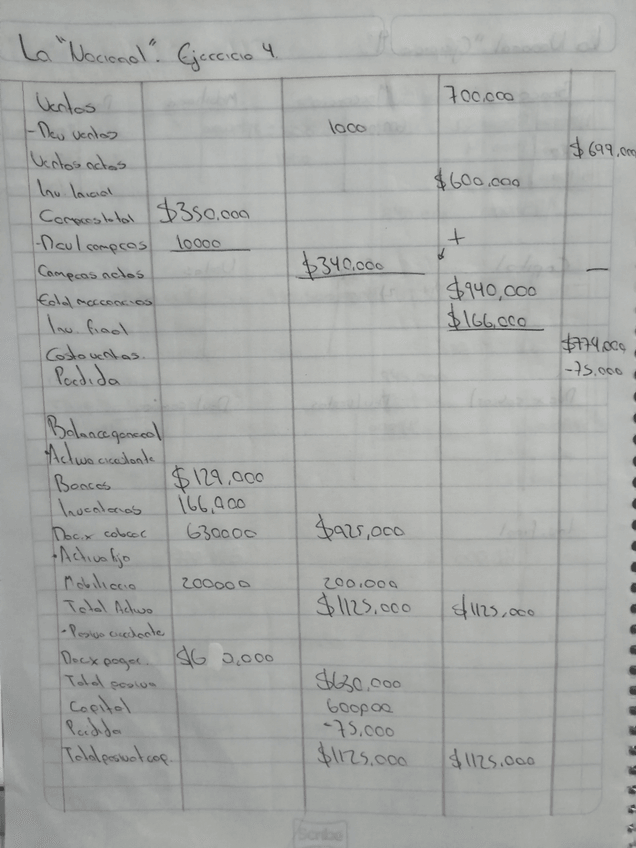 La "Nacional". Ejercicio 4.
Ventas 700,000
-Dev ventas 1000
Ventas netas $699,000
Inv Inicial $600,000
Compras total $350,000
-Devl compras 10000 +
Compras netas $340,000 —
total mercancias $940,000
Inv final $166,000
Costo ventas. $774,000
Perdida -75,000
Balance general
Activo circulante
Bancos $129,000
Inventarios 166,000
Doc.x cobrar 630000 $925,000
·Activo fijo
Mobiliario 200000 200,000
Total Activo $1125,000 $1125,000
-Pasivo circulante
Doc x pagar. $6 0,000
Total pasivo $630,000
Capital 600,000
Perdida -75,000
Total pasivo+cap. $1125,000 $1125,000
Scribe